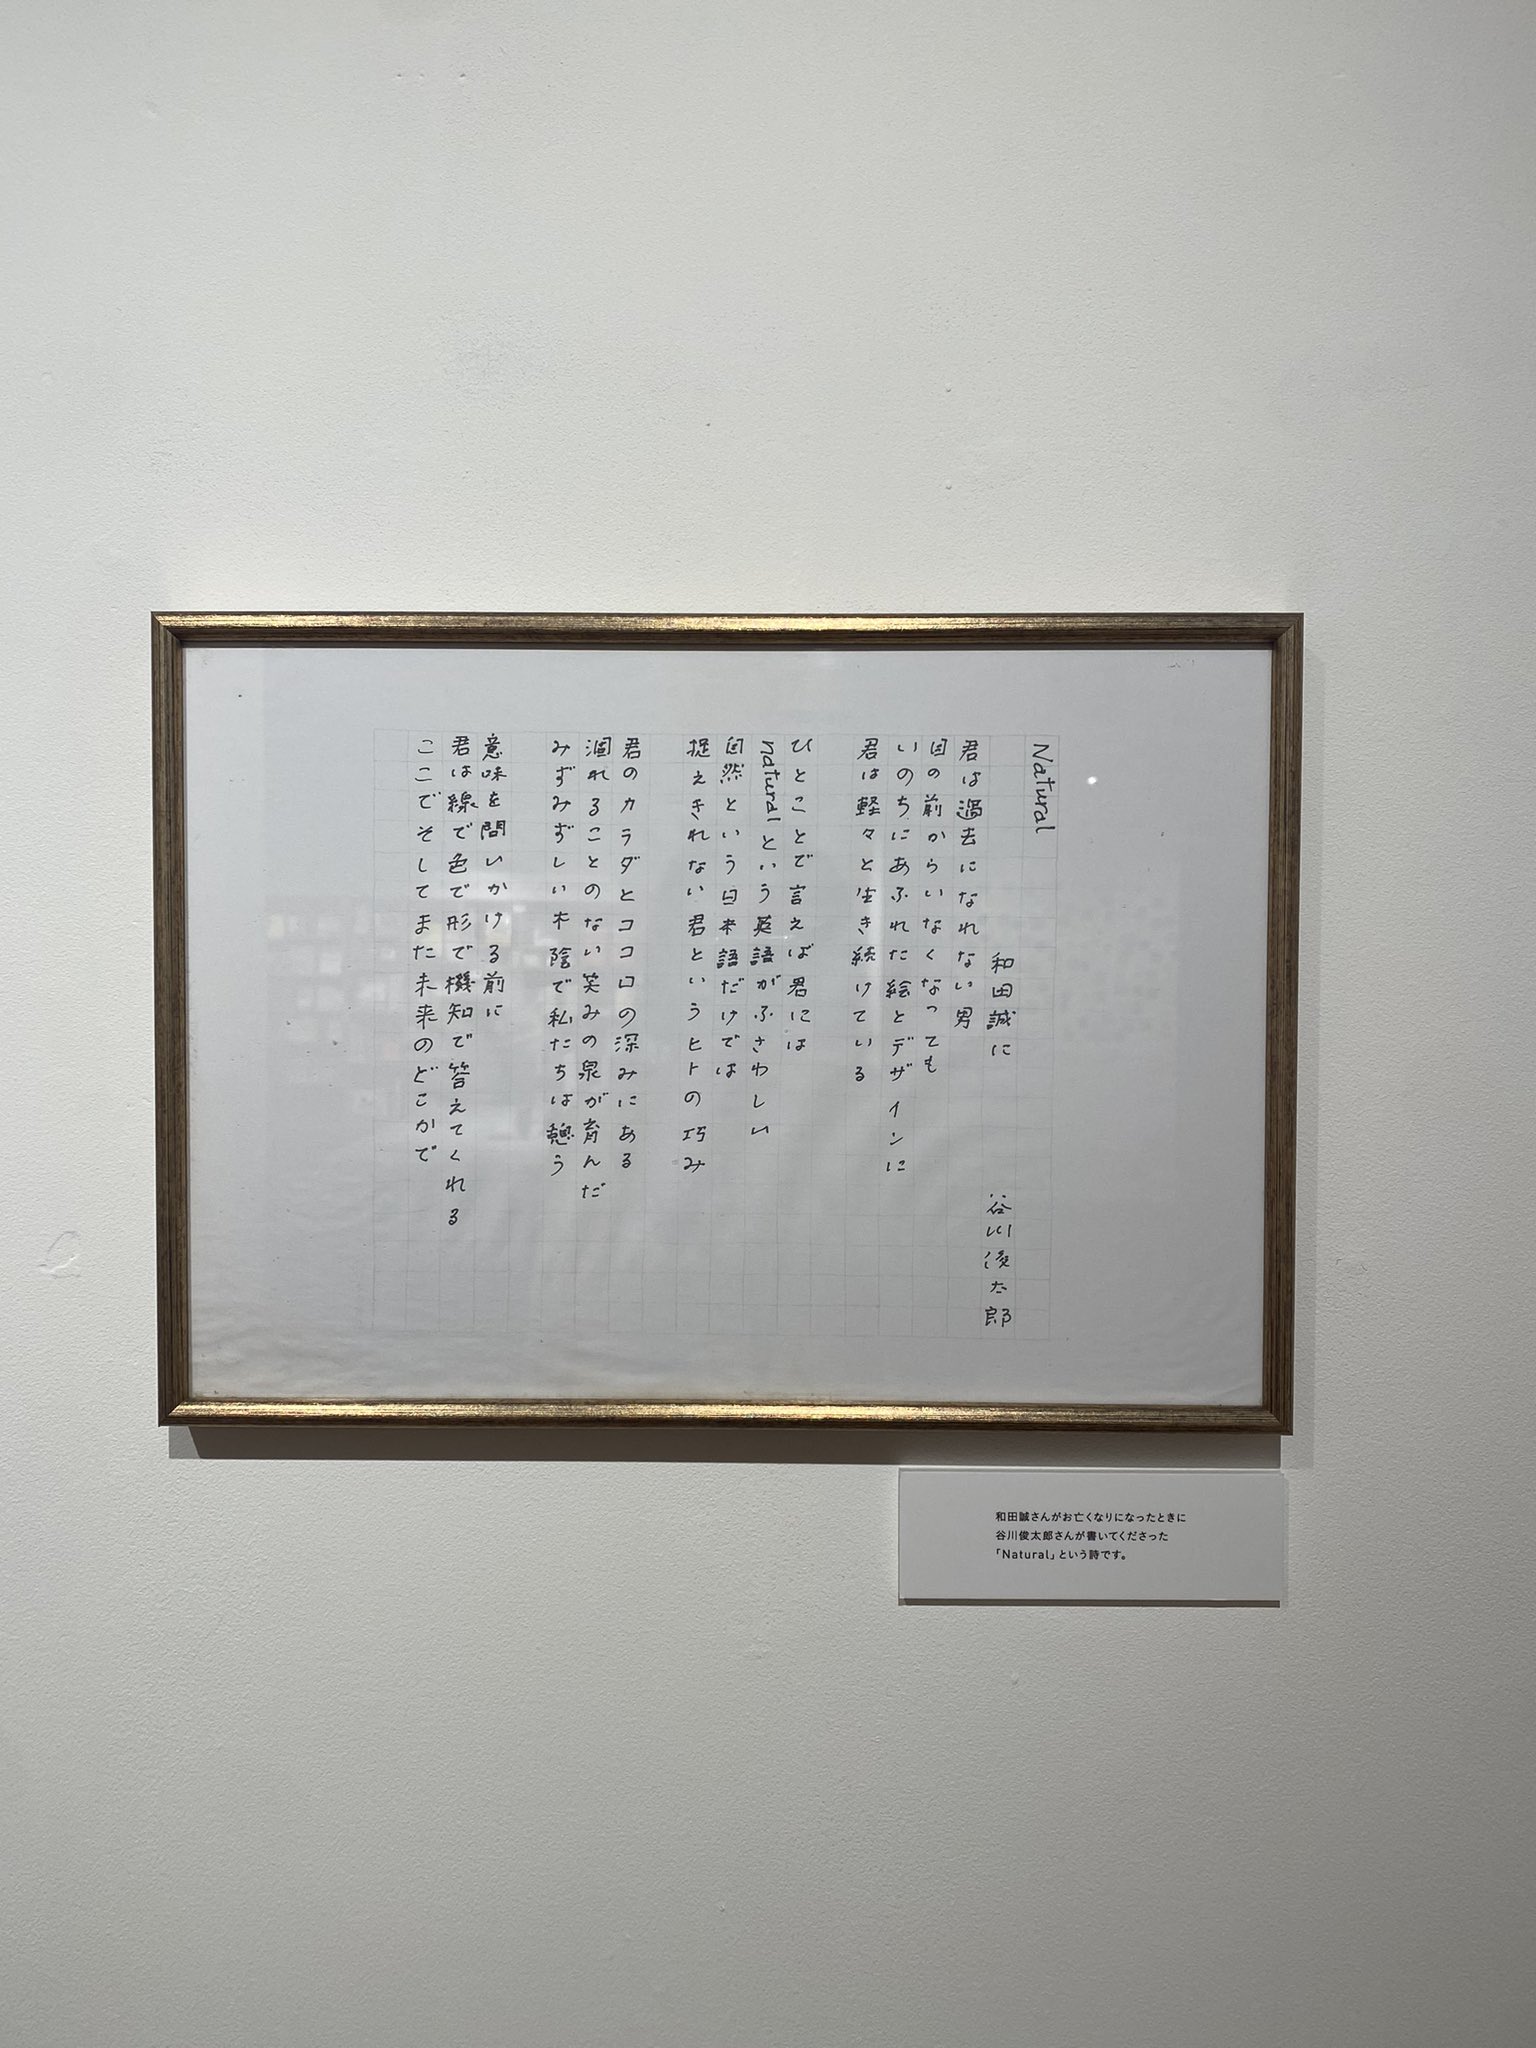 Natural
和田誠に
谷川俊太郎
君は過去になれない男
目の前からいなくなっても
いのちにあふれた絵とデザインに
君は軽々と生き続けている
ひとことで言えば君には
naturalという英語がふさわしい
自然という日本語だけでは
捉えきれない君というヒトの巧み
君のカラダとココロの深みにある
涸れることのない笑みの泉が育んだ
みずみずしい木陰で私たちは憩う
意味を問いかける前に
君は線で色で形で機知で答えてくれる
ここでそしてまた未来のどこかで
和田誠さんがお亡くなりになったときに
谷川俊太郎さんが書いてくださった
「Natural」という詩です。